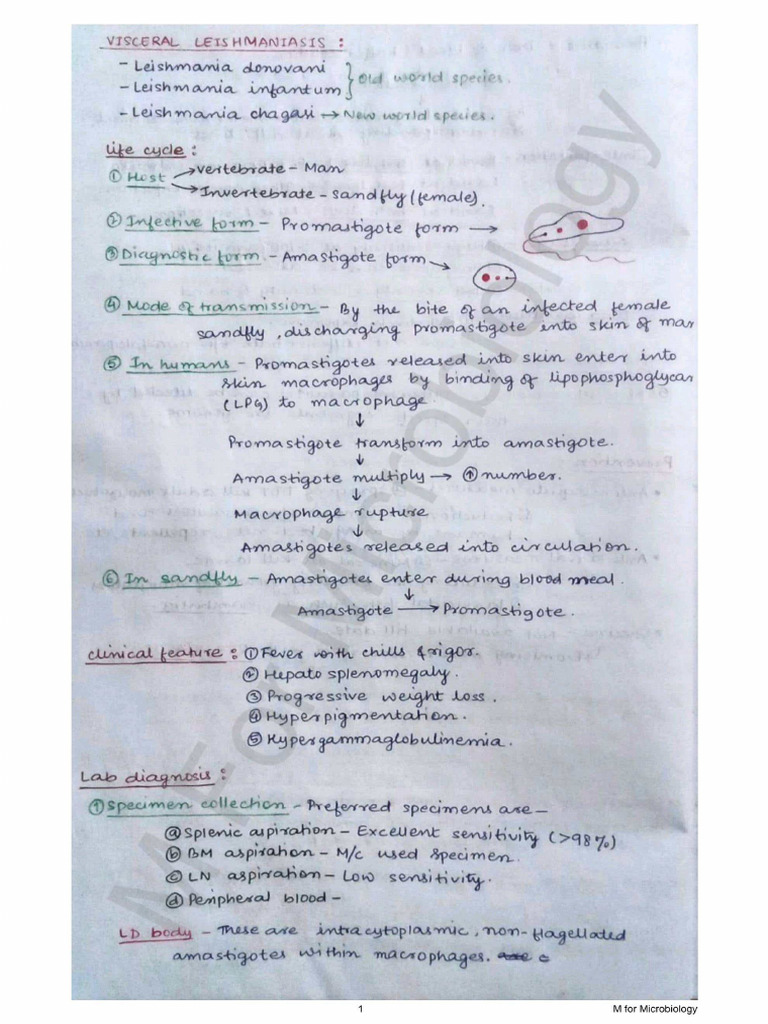 VISCERAL LEISHMANIASIS :
- Leishmania donovani
- Leishmania infantum } Old world species.
- Leishmania chagasi → New world species.
Life cycle :
① Host → Vertebrate - Man
→ Invertebrate - Sandfly (female).
② Infective form - Promastigote form →
③ Diagnostic form - Amastigote form →
④ Mode of transmission - By the bite of an infected female
sandfly, discharging promastigote into skin of man
⑤ In humans - Promastigotes released into skin enter into
skin macrophages by binding of lipophosphoglycan
(LPG) to macrophage.
↓
Promastigote transform into amastigote.
↓
Amastigote multiply → ↑ number.
↓
Macrophage rupture
↓
Amastigotes released into circulation.
⑥ In sandfly - Amastigotes enter during blood meal.
↓
Amastigote → Promastigote.
Clinical feature : ① Fever with chills & rigor.
② Hepato splenomegaly.
③ Progressive weight loss.
④ Hyperpigmentation.
⑤ Hypergammaglobulinemia.
Lab diagnosis :
① Specimen collection - Preferred specimens are -
ⓐ Splenic aspiration - Excellent sensitivity (>98%)
ⓑ BM aspiration - M/c used specimen.
ⓒ LN aspiration - Low sensitivity.
ⓓ Peripheral blood -
LD body - These are intracytoplasmic, non-flagellated
amastigotes within macrophages.
M For Microbiology
1
M for Microbiology